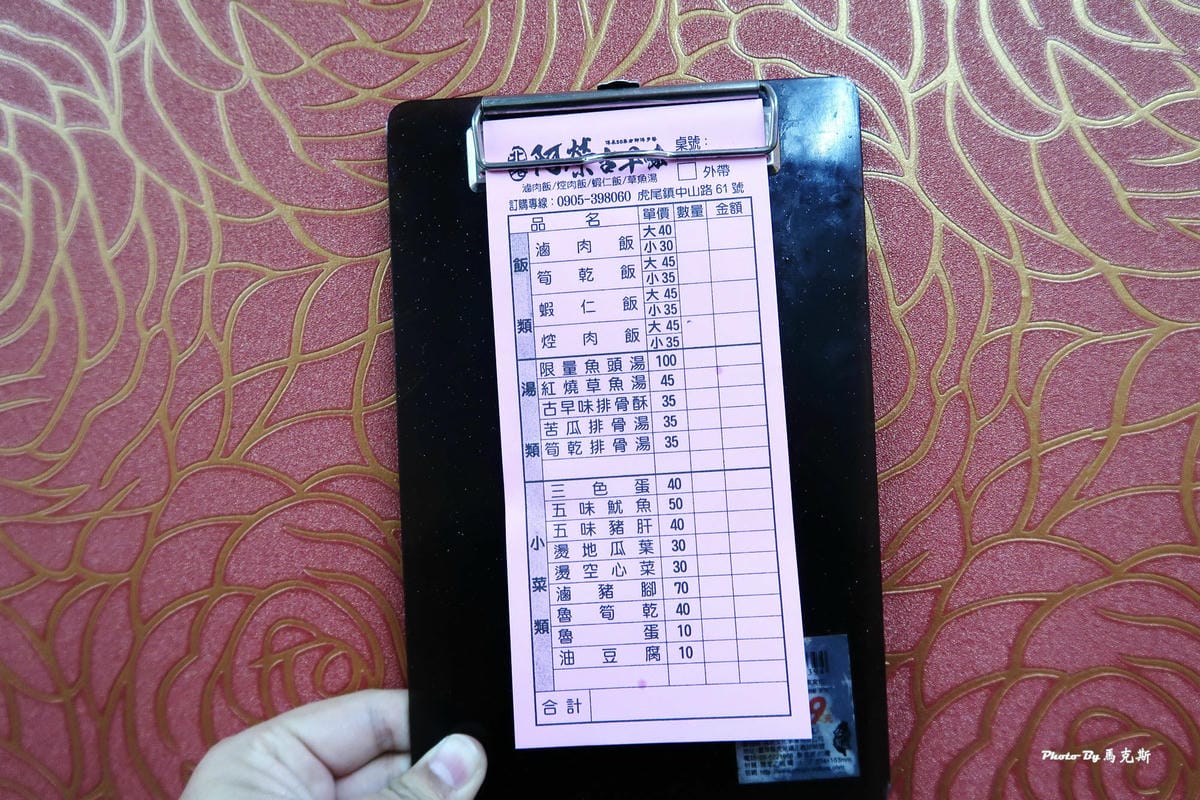 傳承50年古早味手藝
北港 阿榮古早味
桌號：
外帶
滷肉飯/焢肉飯/蝦仁飯/草魚湯
訂購專線：0905-398060 虎尾鎮中山路 61 號
品名 單價 數量 金額
飯類
滷肉飯 大 40 小 30
筍乾飯 大 45 小 35
蝦仁飯 大 45 小 35
焢肉飯 大 45 小 35
湯類
限量魚頭湯 100
紅燒草魚湯 45
古早味排骨酥 35
苦瓜排骨湯 35
筍乾排骨湯 35
小菜類
三色蛋 40
五味魷魚 50
五味豬肝 40
燙地瓜葉 30
燙空心菜 30
滷豬腳 70
魯筍乾 40
魯蛋 10
油豆腐 10
合計
Photo By 馬克斯